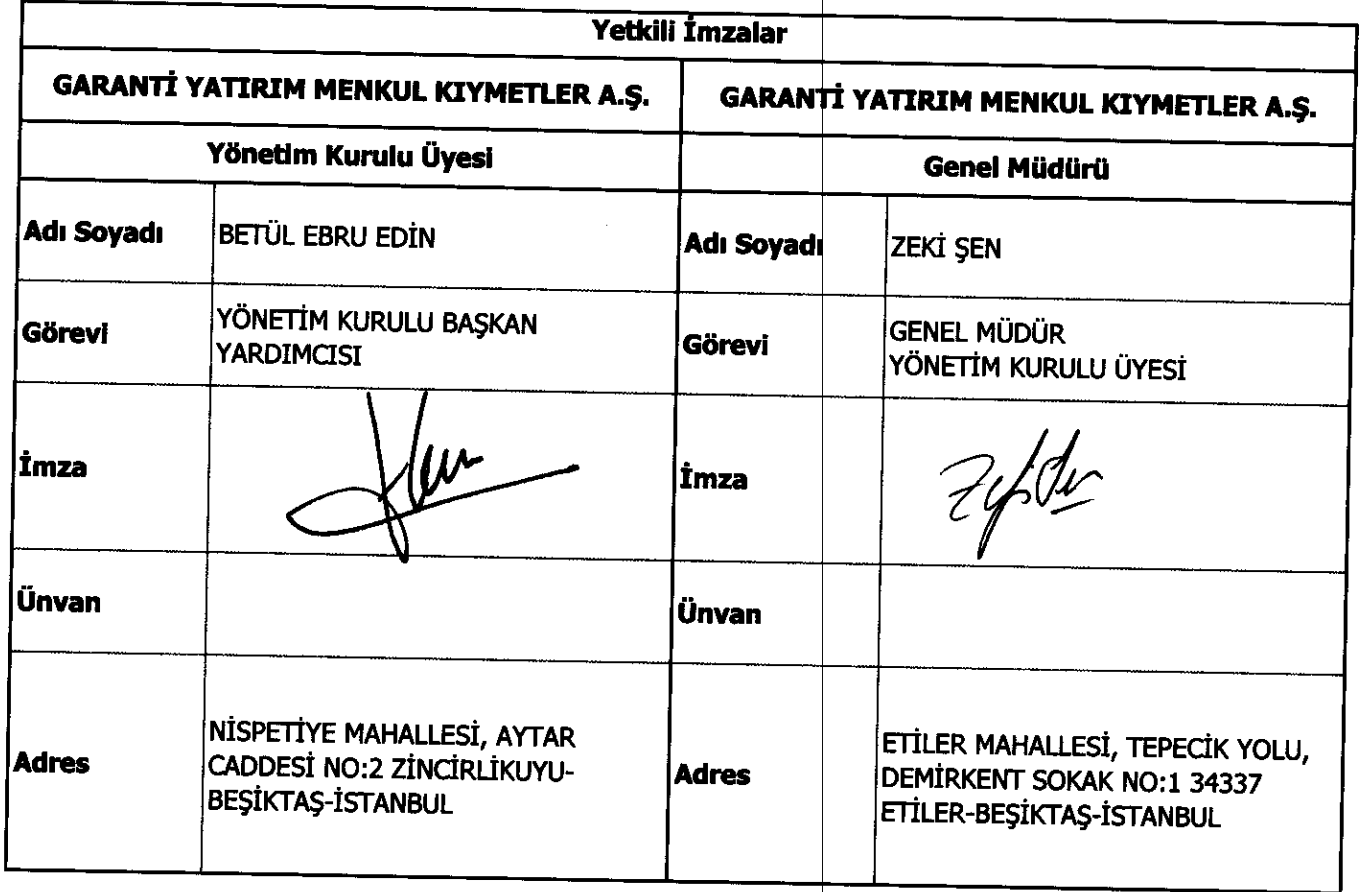 Yetkili İmzalar
GARANTİ YATIRIM MENKUL KIYMETLER A.Ş. GARANTİ YATIRIM MENKUL KIYMETLER A.Ş.
Yönetim Kurulu Üyesi Genel Müdürü
Adı Soyadı BETÜL EBRU EDİN Adı Soyadı ZEKİ ŞEN
Görevi YÖNETİM KURULU BAŞKAN
YARDIMCISI
Görevi GENEL MÜDÜR
YÖNETİM KURULU ÜYESİ
İmza İmza
Ünvan Ünvan
Adres NİSPETİYE MAHALLESİ, AYTAR
CADDESİ NO:2 ZİNCİRLİKUYU-
BEŞİKTAŞ-İSTANBUL
Adres ETİLER MAHALLESİ, TEPECİK YOLU,
DEMİRKENT SOKAK NO:1 34337
ETİLER-BEŞİKTAŞ-İSTANBUL